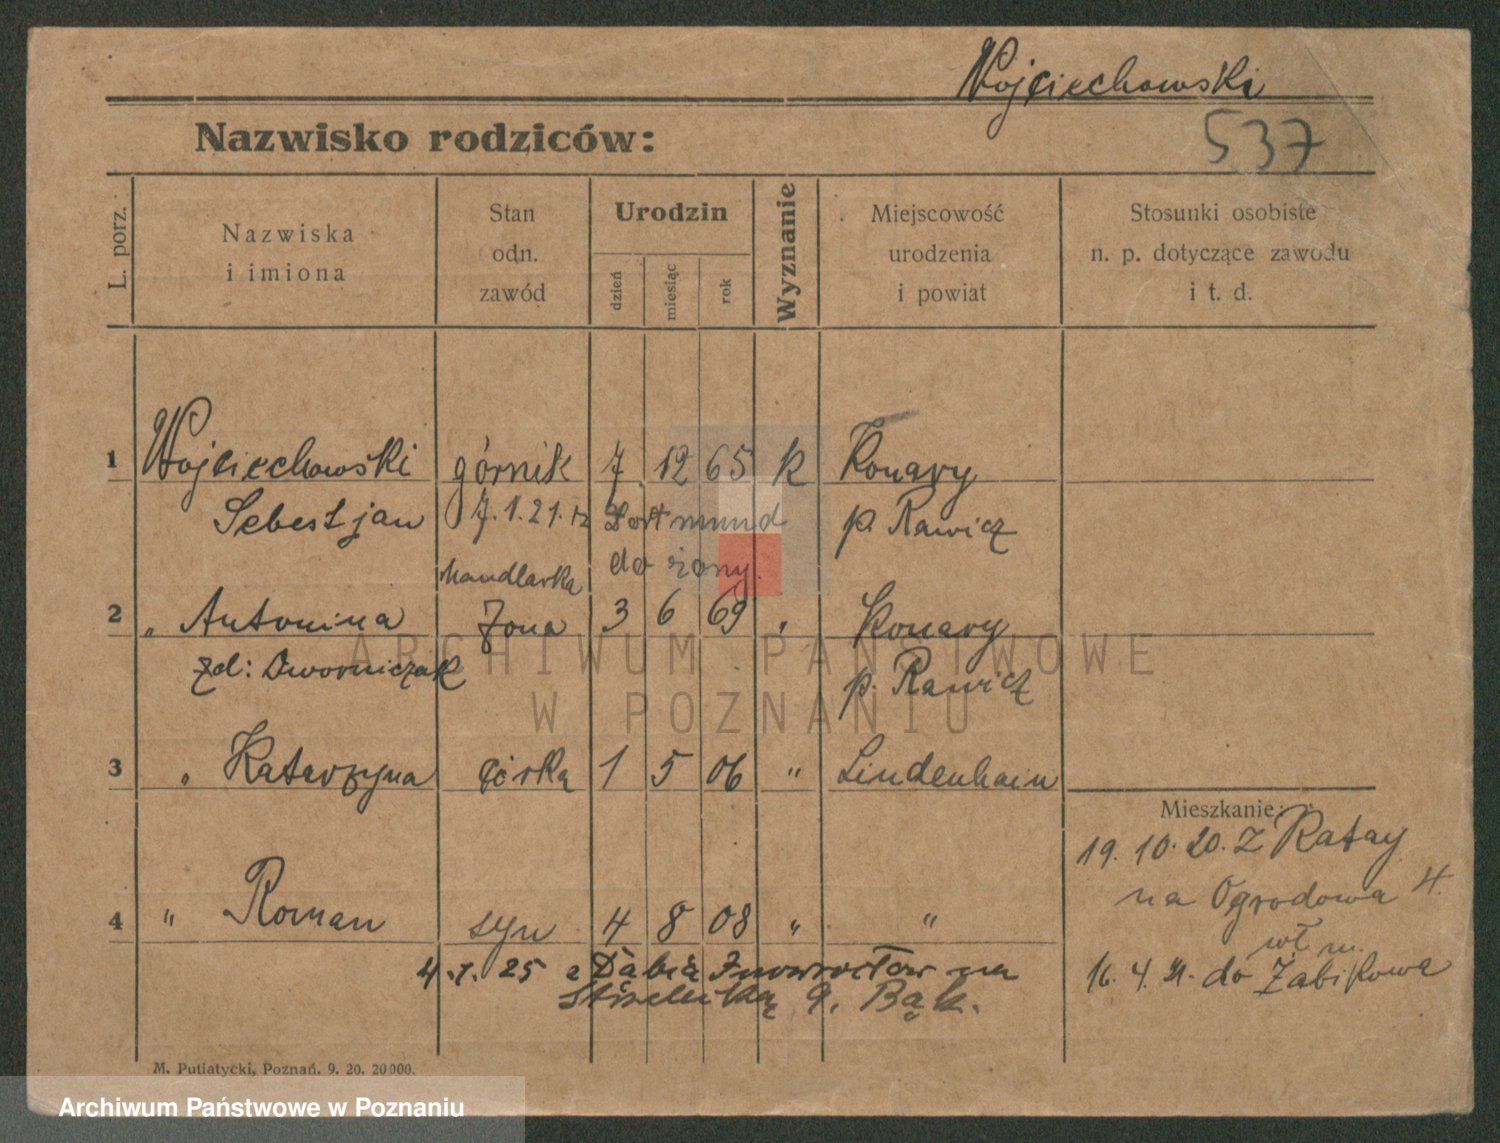 Wojciechowski
Nazwisko rodziców:
537
L. porz.
Nazwiska
i imiona
Stan
odn.
zawód
Urodzin
dzień
miesiąc
rok
Wyznanie
Miejscowość
urodzenia
i powiat
Stosunki osobiste
n. p. dotyczące zawodu
i t. d.
1 Wojciechowski górnik 7 12 65 k Konary
Sebestjan 7.1.21. z Dortmund p. Rawicz
handlarka do żony.
2 " Antonina żona 3 6 69 " Konary
zd: Dworniczak p. Rawicz
3 " Katarzyna córka 1 5 06 " Lindenhain
4 " Roman syn 4 8 08 " "
4.7.25 z Inowrocław na
9. Bąk.
Mieszkanie:
19.10.20. z Rataj
na Ogrodowa 4.
16.4.21. do Żabikowa
M. Putiatycki, Poznań. 9. 20. 20000.
ARCHIWUM PAŃSTWOWE
W POZNANIU
Archiwum Państwowe w Poznaniu